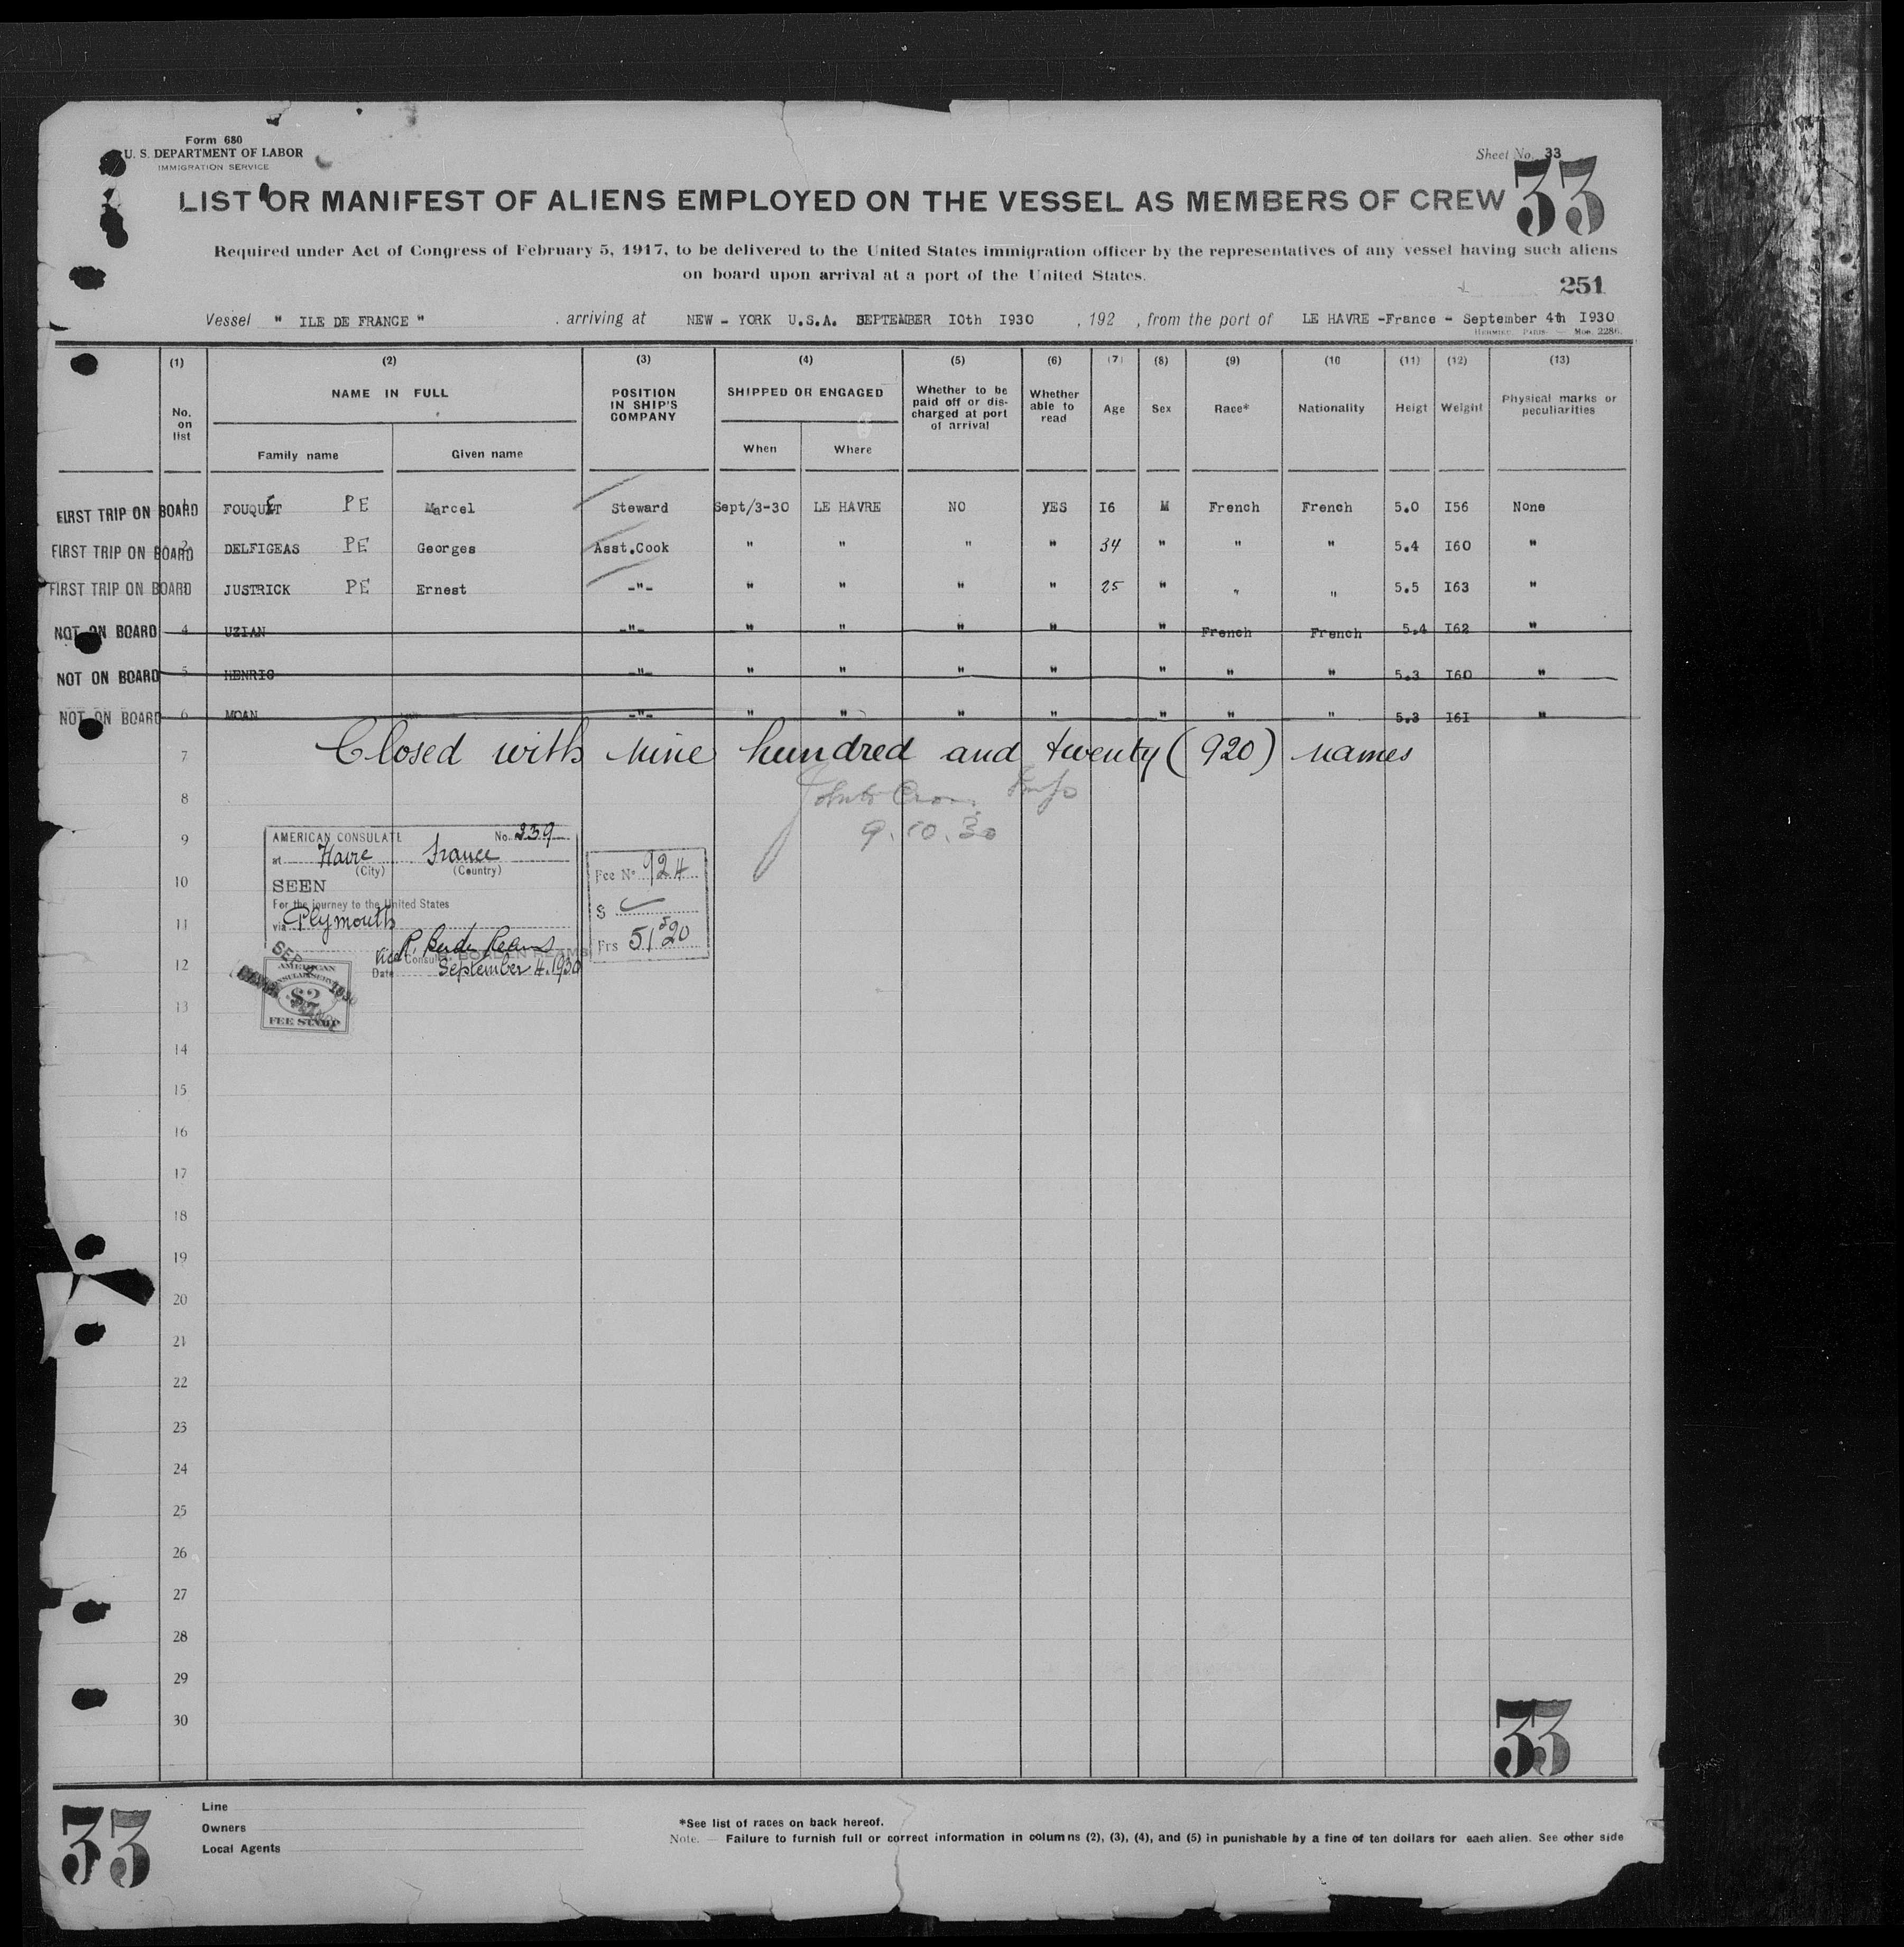 Form 680
U. S. DEPARTMENT OF LABOR
IMMIGRATION SERVICE
Sheet No. 33
33
LIST OR MANIFEST OF ALIENS EMPLOYED ON THE VESSEL AS MEMBERS OF CREW
Required under Act of Congress of February 5, 1917, to be delivered to the United States immigration officer by the representatives of any vessel having such aliens
on board upon arrival at a port of the United States.
251
Vessel " ILE DE FRANCE " . arriving at NEW - YORK U.S.A. SEPTEMBER IOth I930 , 192 , from the port of LE HAVRE -France - September 4th I930
(1) (2) (3) (4) (5) (6) (7) (8) (9) (10 (11) (12) (13)
No. on list NAME IN FULL POSITION IN SHIP'S COMPANY SHIPPED OR ENGAGED Whether to be paid off or dis-charged at port of arrival Whether able to read Age Sex Race* Nationality Heigt Weight Physical marks or peculiarities
Family name Given name When Where
FIRST TRIP ON BOARD 1 FOUQUET PE Marcel Steward Sept/3-30 LE HAVRE NO YES I6 M French French 5.0 I56 None
FIRST TRIP ON BOARD 2 DELFIGEAS PE Georges Asst.Cook " " " " 34 " " " 5.4 I60 "
FIRST TRIP ON BOARD 3 JUSTRICK PE Ernest -"- " " " " 25 " " " 5.5 I63 "
NOT ON BOARD 4 UZIAN -"- " " " " " French French 5.4 I62 "
NOT ON BOARD 5 HENRIO -"- " " " " " " " 5.3 I60 "
NOT ON BOARD 6 MOAN -"- " " " " " " " 5.3 I6I "
7 Closed with nine hundred and twenty (920) names
8
9.10.30
9
AMERICAN CONSULATE No. 239
at Havre France
(City) (Country)
10
SEEN
For the journey to the United States
11
via Plymouth
Vice Consul R. BORDEN REAMS
12
Date September 4. 1930
Fee No 924
$
Frs 51 20
SEP 1930
AMERICAN
CONSULAR SERVICE
$2
FEE STAMP
13
14
15
16
17
18
19
20
21
22
23
24
25
26
27
28
29
30
33
33
Line
Owners
Local Agents
*See list of races on back hereof.
Note. — Failure to furnish full or correct information in columns (2), (3), (4), and (5) in punishable by a fine of ten dollars for each alien. See other side